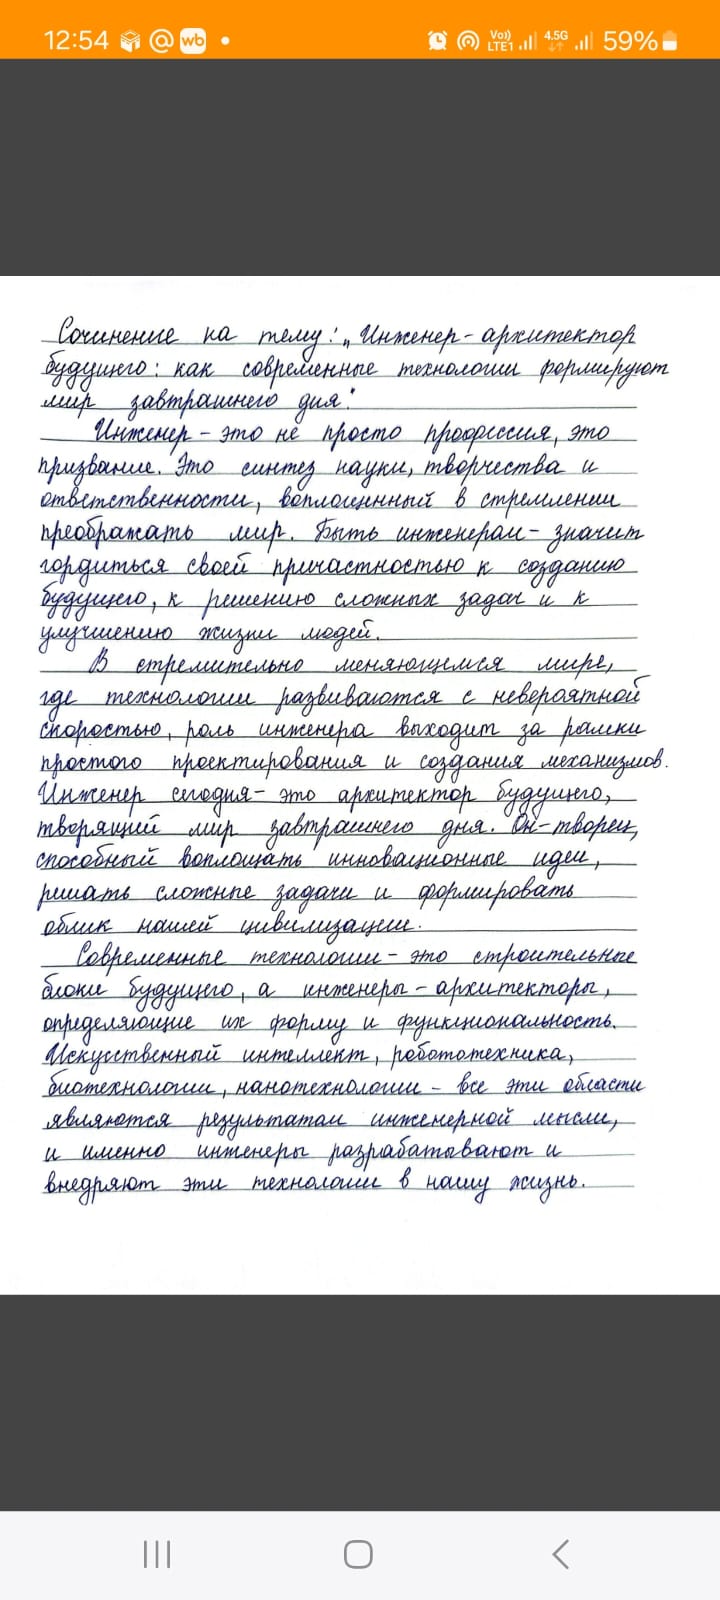 12:54 @ wb • Vo)) LTE1 4.5G 59%
Сочинение на тему: „Инженер-архитектор
будущего: как современные технологии формируют
мир завтрашнего дня".
Инженер - это не просто профессия, это
призвание. Это синтез науки, творчества и
ответственности, воплощенный в стремлении
преображать мир. Быть инженером - значит
гордиться своей причастностью к созданию
будущего, к решению сложных задач и к
улучшению жизни людей.
В стремительно меняющемся мире,
где технологии развиваются с невероятной
скоростью, роль инженера выходит за рамки
простого проектирования и создания механизмов.
Инженер сегодня - это архитектор будущего,
творящий мир завтрашнего дня. Он-творец,
способный воплощать инновационные идеи,
решать сложные задачи и формировать
облик нашей цивилизации.
Современные технологии - это строительные
блоки будущего, а инженеры - архитекторы,
определяющие их форму и функциональность.
Искусственный интеллект, робототехника,
биотехнологии, нанотехнологии - все эти области
являются результатом инженерной мысли,
и именно инженеры разрабатывают и
внедряют эти технологии в нашу жизнь.